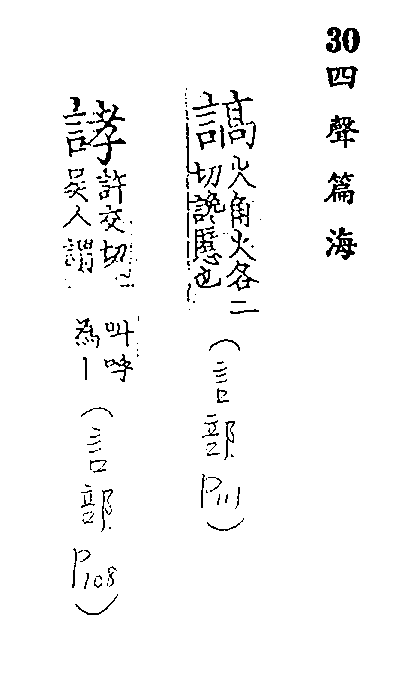 30四聲篇海
謞火角火各二切讒慝也(言部P111)
誟許交切吳人謂叫呼為丨(言部P108)